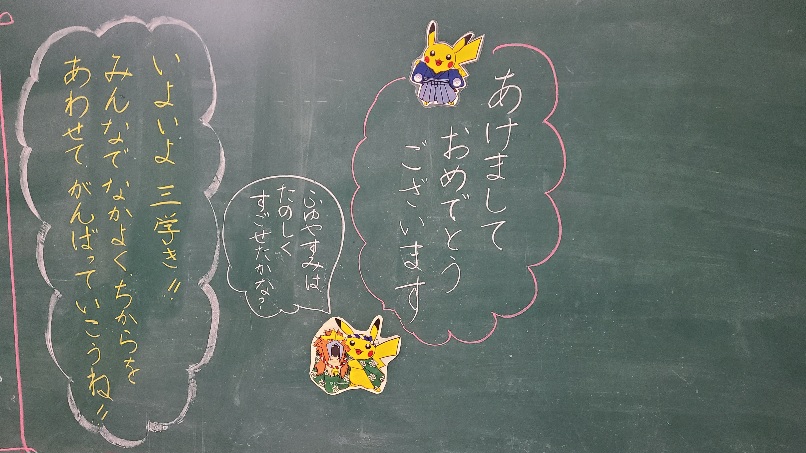 あけまして
おめでとう
ございます
ふゆやすみは
たのしく
すごせたかな?
いよいよ 三学き!!
みんなで なかよく ちからを
あわせて がんばって いこうね!!